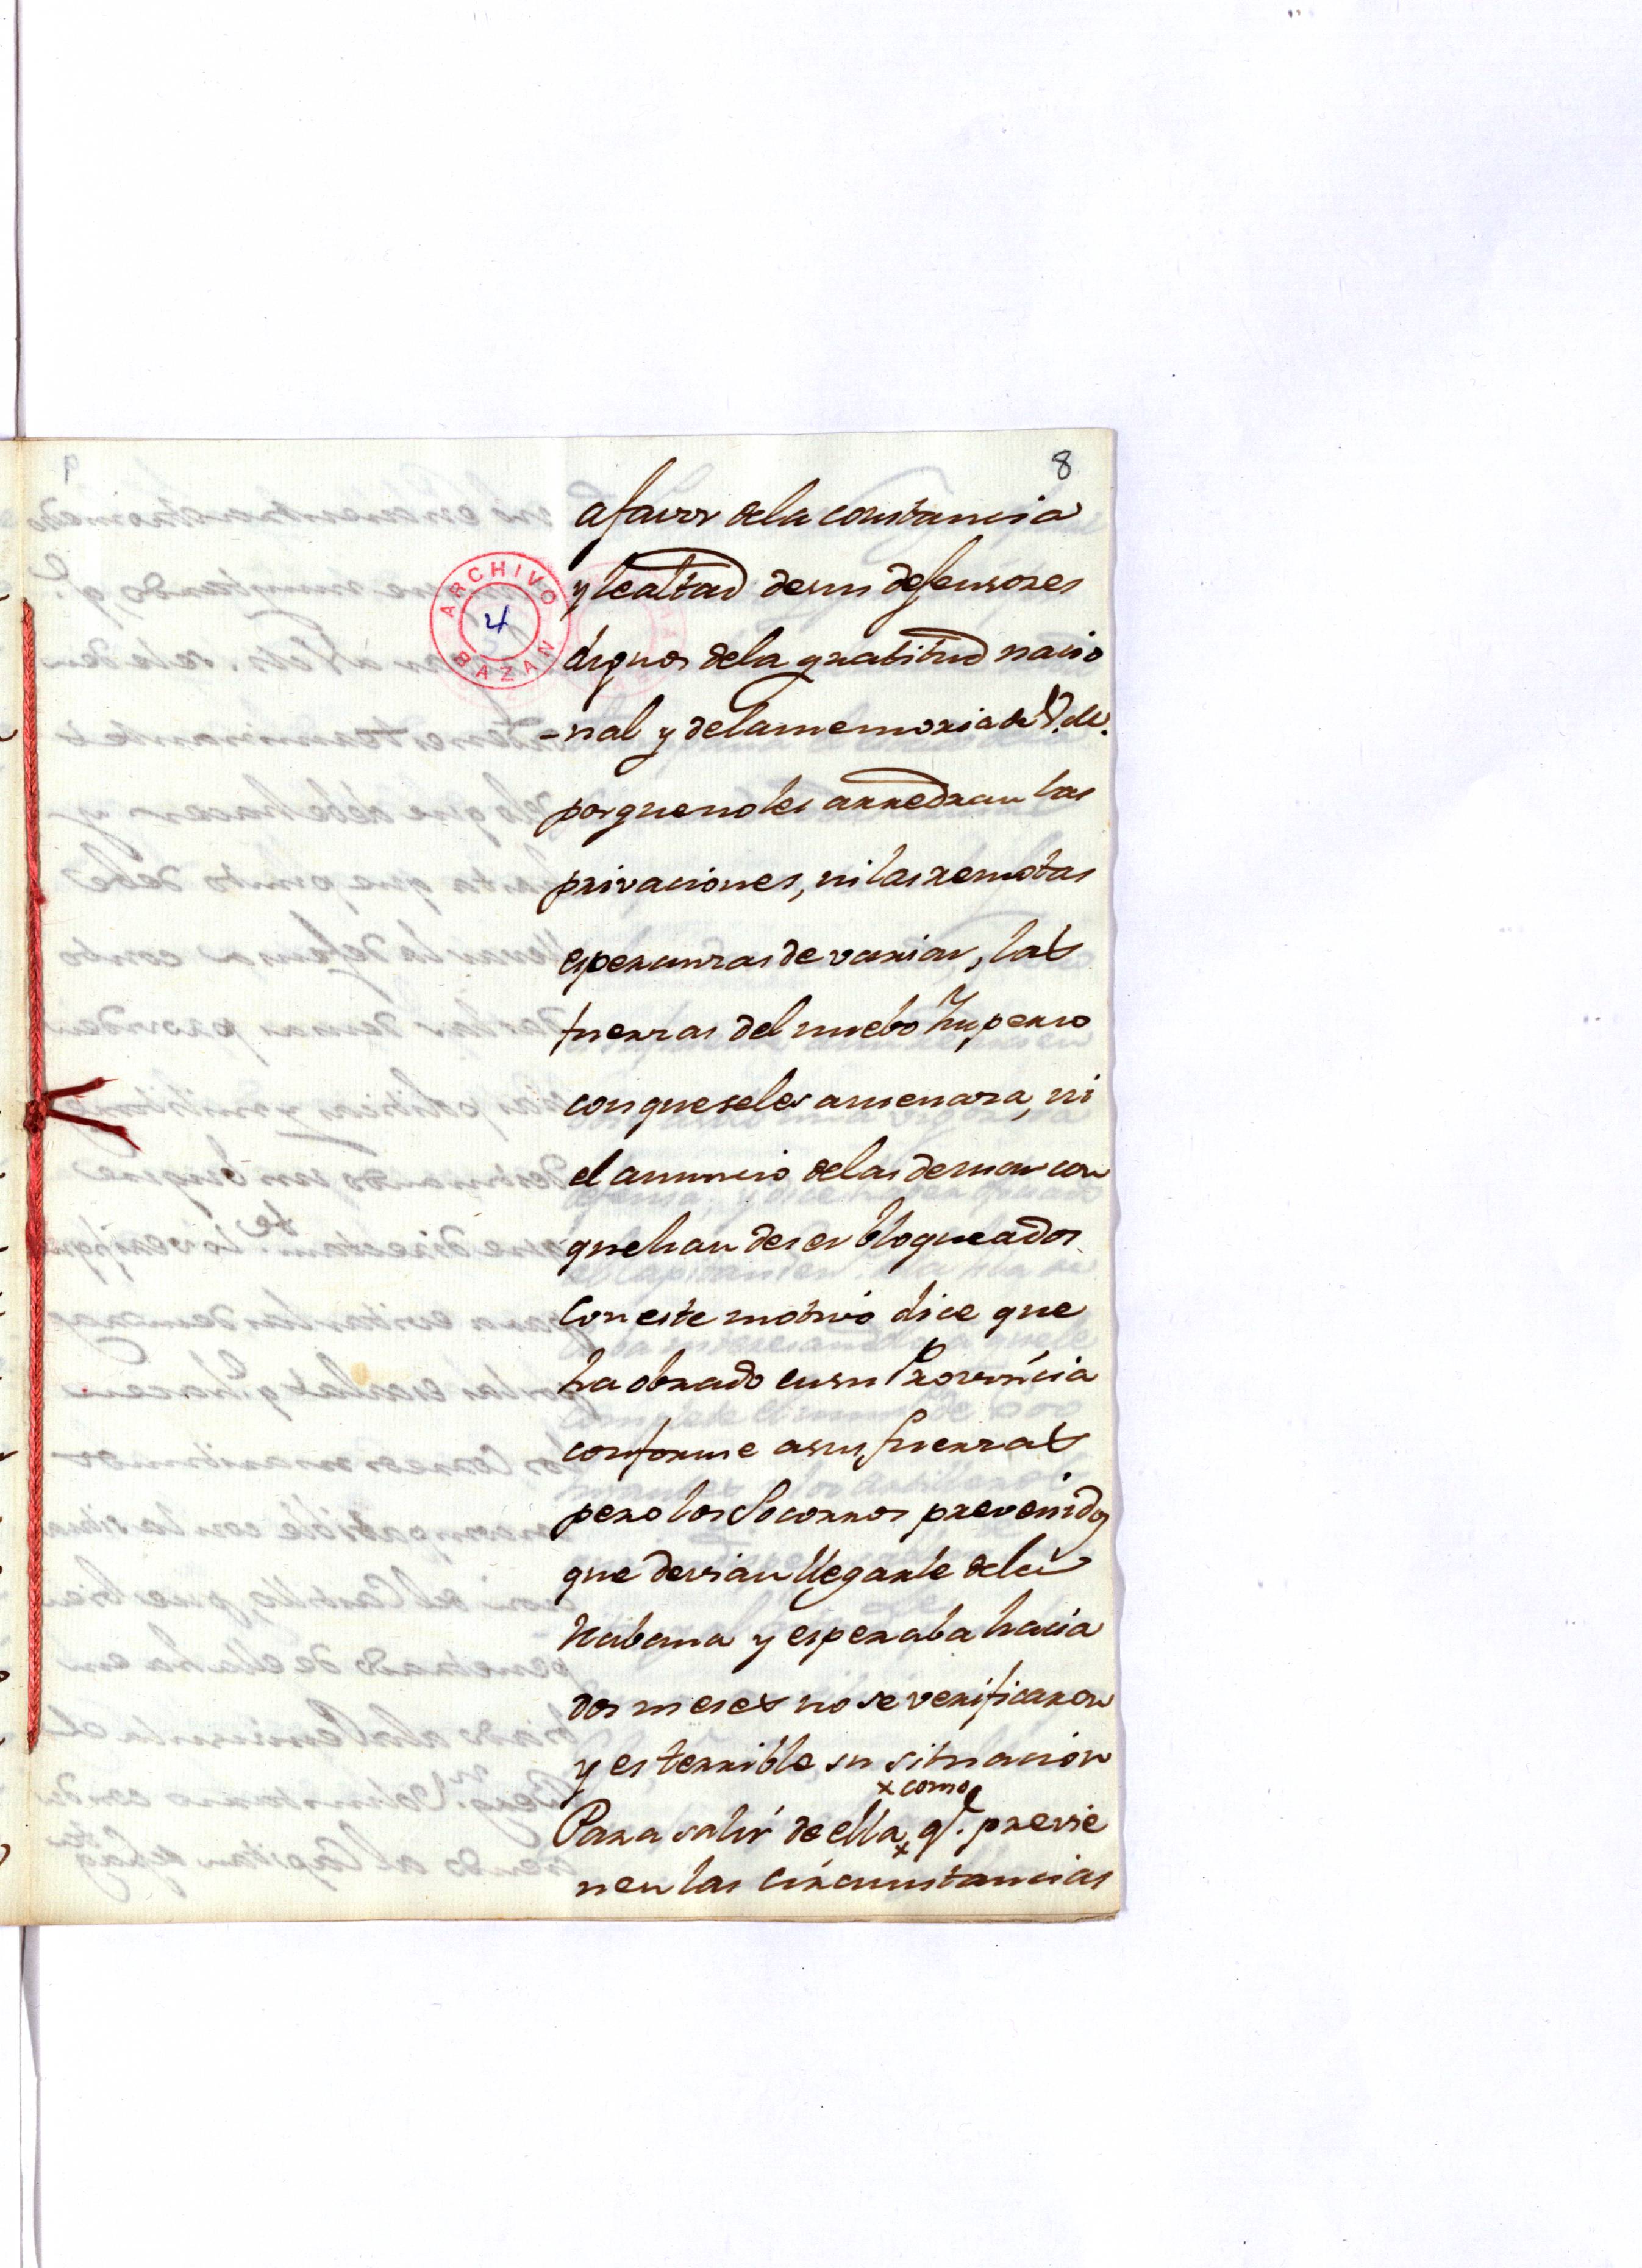 8
a favor dela constancia
y lealtad desus defensores
dignos dela gratitud nacio
-nal y dela memoria de V.M.
porque no les arredran las
privaciones, ni las remotas
esperanzas de variar, las
fuerzas del nuebo Ymperio
con que seles amenaza, ni
el anuncio delas demar con
que han de ser bloqueados.
Con este motivo dice que
ha obrado en su Provincia
conforme a sus fuerzas
pero los Socorros prevenidos
que devian llegarle dela
Habana y esperaba hacia
dos meses no se verificaron
y es terrible su situacion
x como
Para salir de ella x qe. previe
nen las circunstancias
ARCHIVO
4
BAZAN